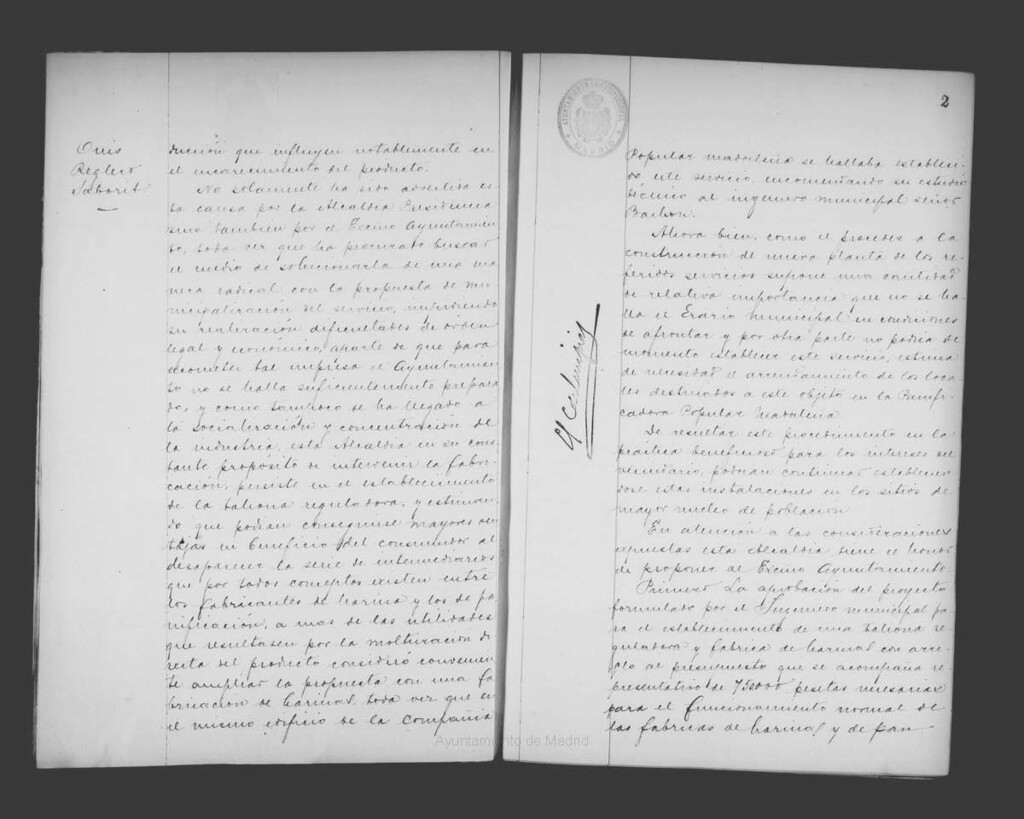 Ovis
Reglero
Saborit
ducción que influyen notablemente en
el encarecimiento del producto.
No solamente ha sido advertida es
ta causa por la Alcaldia Presidencia
sino tambien por el Excmo Ayuntamien
to, toda vez que ha procurado buscar
el medio de solucionarla de una ma
nera radical con la propuesta de mu
nicipalización del servicio, impidiendo
su realización dificultades de orden
legal y económico, aparte de que para
acometer tal empresa el Ayuntamien
to no se halla suficientemente prepara
do, y como tampoco se ha llegado a
la socialización y concentración de
la industria, esta Alcaldia en su cons
tante propósito de intervenir la fabri
cación, persiste en el establecimiento
de la tahona reguladora, y estiman
do que podian conseguirse mayores ven
tajas en beneficio del consumidor al
desaparecer la serie de intermediarios
que por todos conceptos existen entre
los fabricantes de harina y los de pa
nificación, a mas de las utilidades
que resultasen por la molturacion di
recta del producto consideró convenien
te ampliar la propuesta con una fa
bricacion de harinas, toda vez que en
el mismo edificio de la Compañia
Ayuntamiento de Madrid
AYUNTAMIENTO CONSTITUCIONAL
MADRID
2
Popular madrileña se hallaba estableci
do este servicio, encomendando su estudio
técnico al ingeniero municipal señor
Ahora bien, como el proceder a la
construcción de nueva planta de los re
feridos servicios supone una cantidad
de relativa importancia que no se ha
lla el Erario municipal en condiciones
de afrontar y por otra parte no podria de
momento establecer este servicio, estima
de necesidad el arrendamiento de los loca
les destinados a este objeto en la Panifi
cadora Popular Madrileña
De resultar este procedimiento en la
práctica beneficioso para los intereses del
vecindario, podrian continuar establecien
dose estas instalaciones en los sitios de
mayor nucleo de población
En atención a las consideraciones
expuestas esta Alcaldia tiene el honor
de proponer al Excmo Ayuntamiento:
Primero La aprobación del proyecto
formulado por el Ingeniero municipal pa
ra el establecimiento de una tahona re
guladora y fabrica de harinas con arre
glo al presupuesto que se acompaña re
presentativo de 750000 pesetas necesarias
para el funcionamiento normal de
las fabricas de harinas y de pan